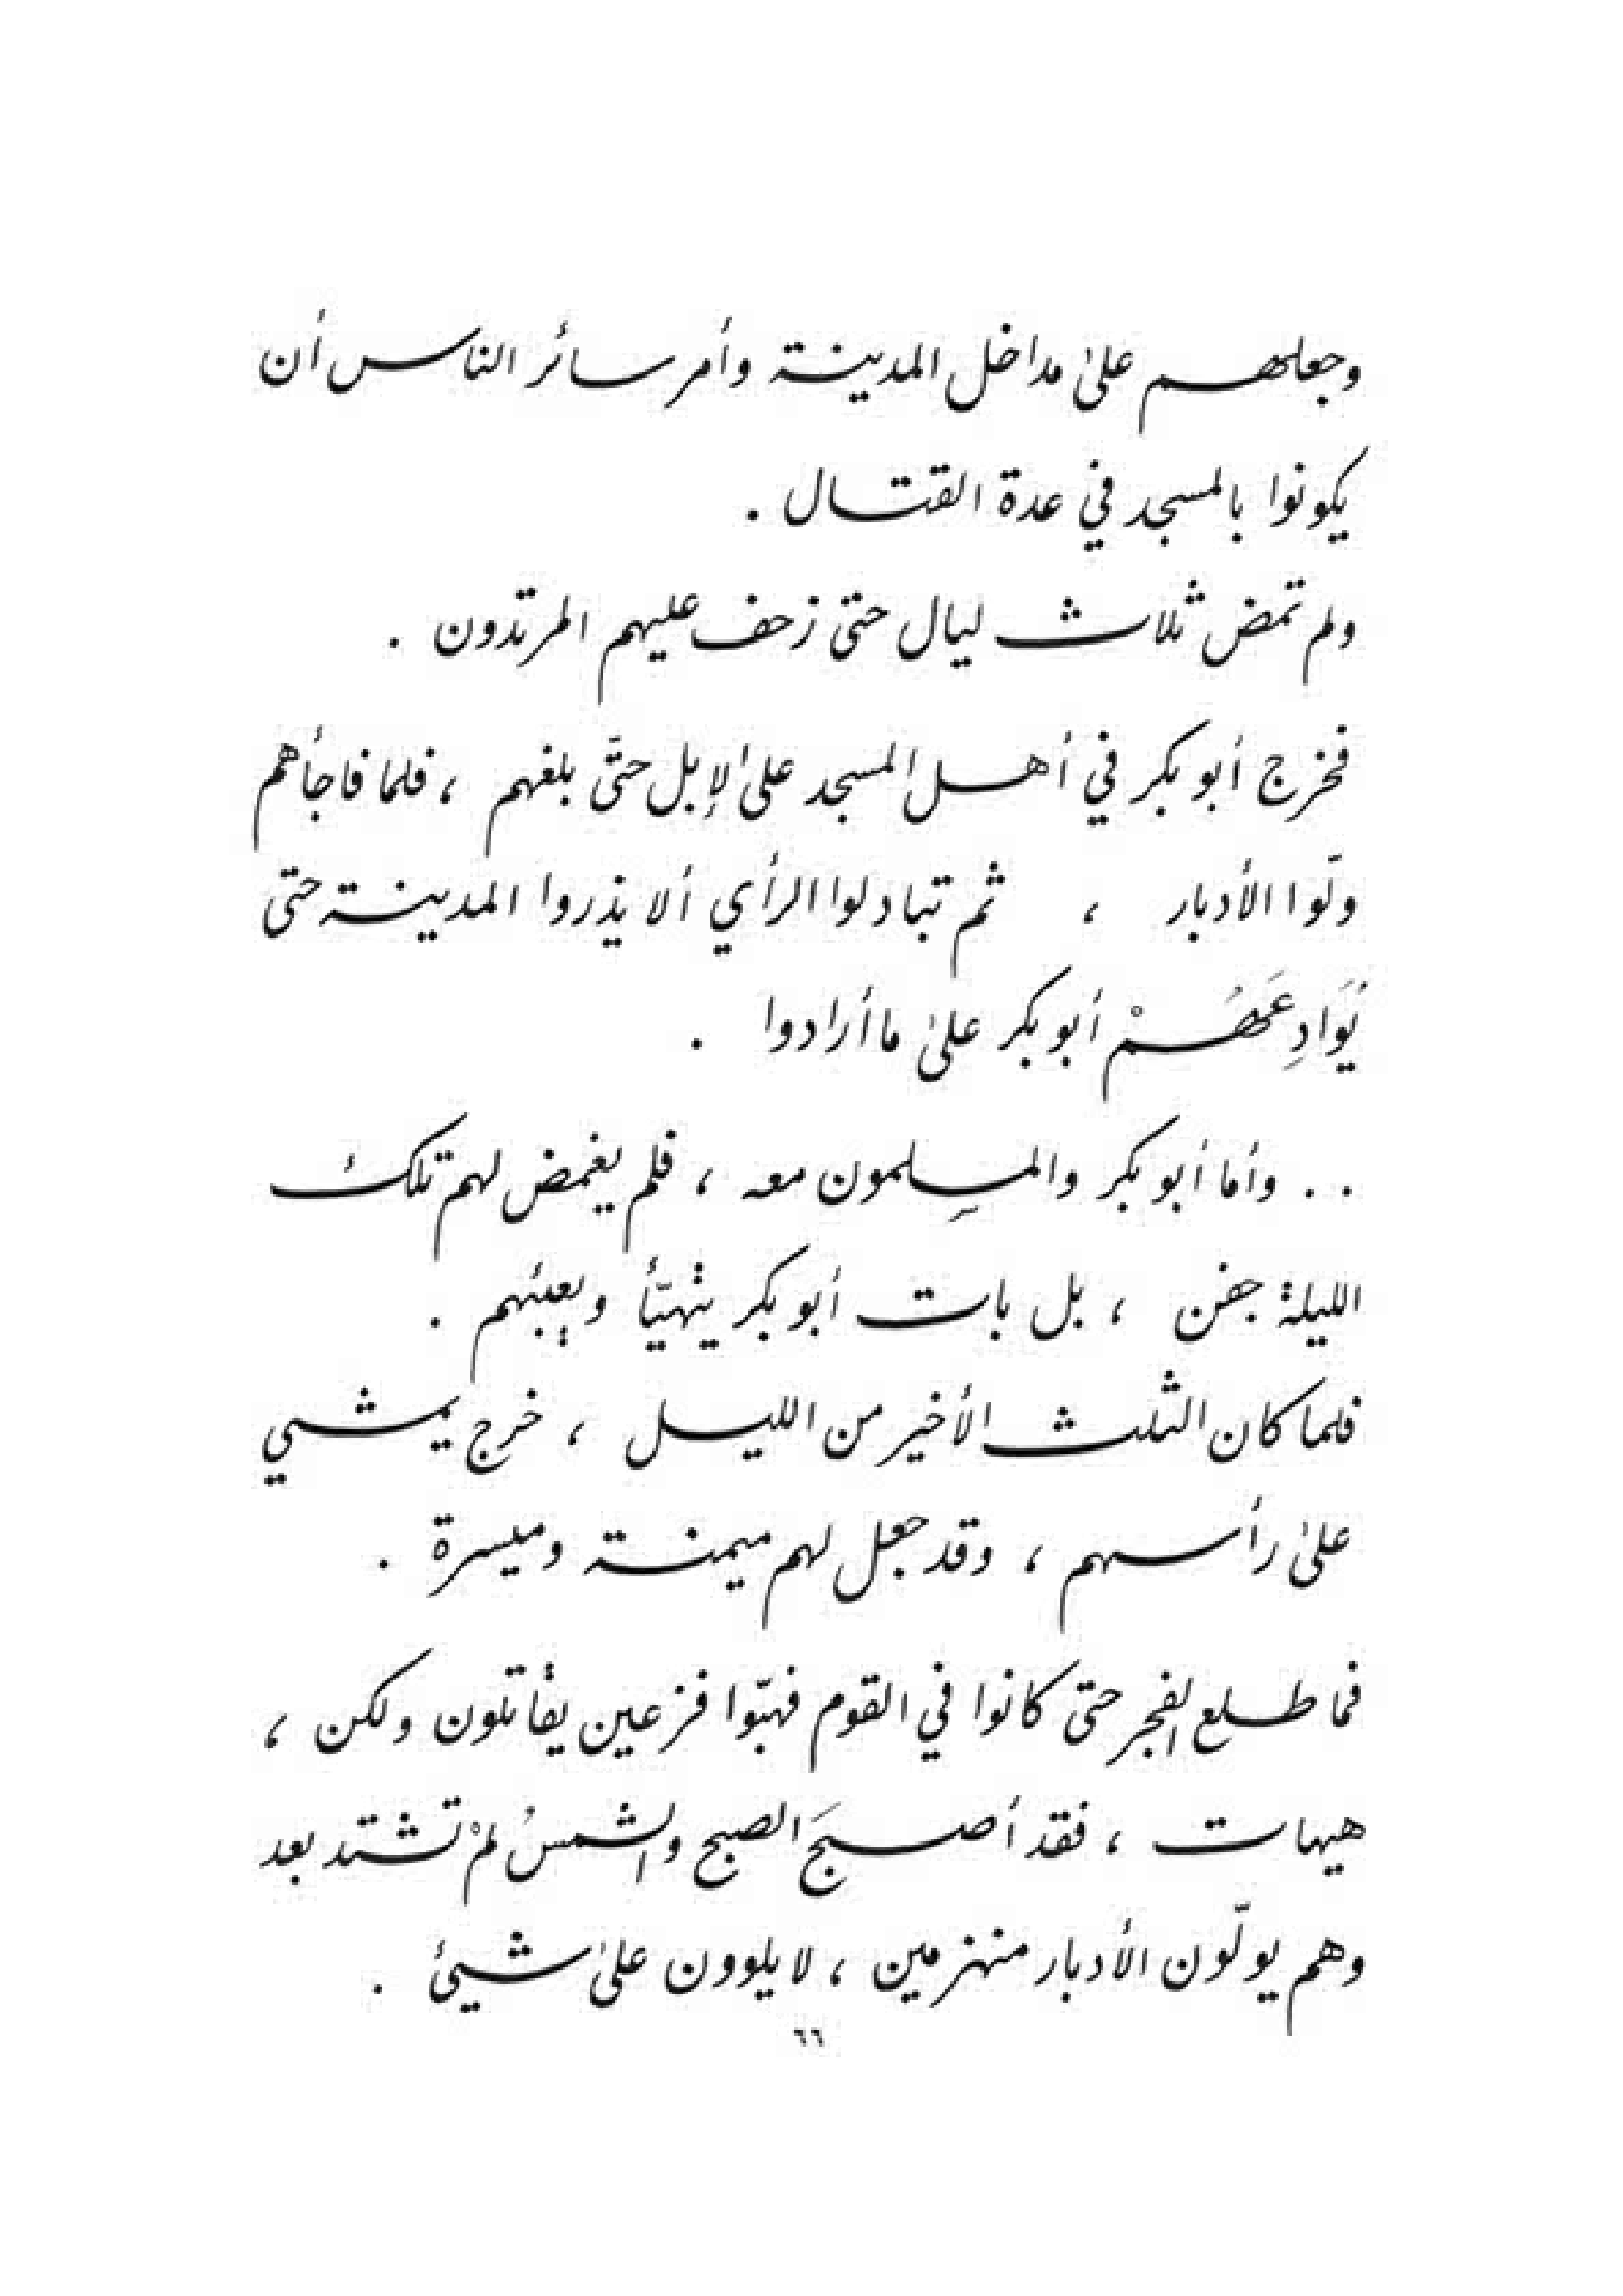 وجعلهم على مداخل المدينة وأمر سائر الناس أن
يكونوا بالمسجد في عدة القتال .
ولم تمض ثلاث ليال حتى زحف عليهم المرتدون .
فخرج أبو بكر في أهل المسجد على الإبل حتَّى بلغهم ، فلما فاجأهم
ولّوا الأدبار ، ثم تبادلوا الرأي ألا يذروا المدينة حتى
يُوَادِعَهُمْ أبو بكر على ما أرادوا .
. . وأما أبو بكر والمسلمون معه ، فلم يغمض لهم تلك
الليلة جفن ، بل بات أبو بكر يتهيّأ ويعبئهم .
فلما كان الثلث الأخير من الليل ، خرج يمشي
على رأسهم ، وقد جعل لهم ميمنة وميسرة .
فما طلع الفجر حتى كانوا في القوم فهبّوا فزعين يقاتلون ولكن ،
هيهات ، فقد أصبَح الصبح والشمسُ لمْ تشتد بعد
وهم يولّون الأدبار منهزمين ، لا يلوون على شيئ .
٦٦